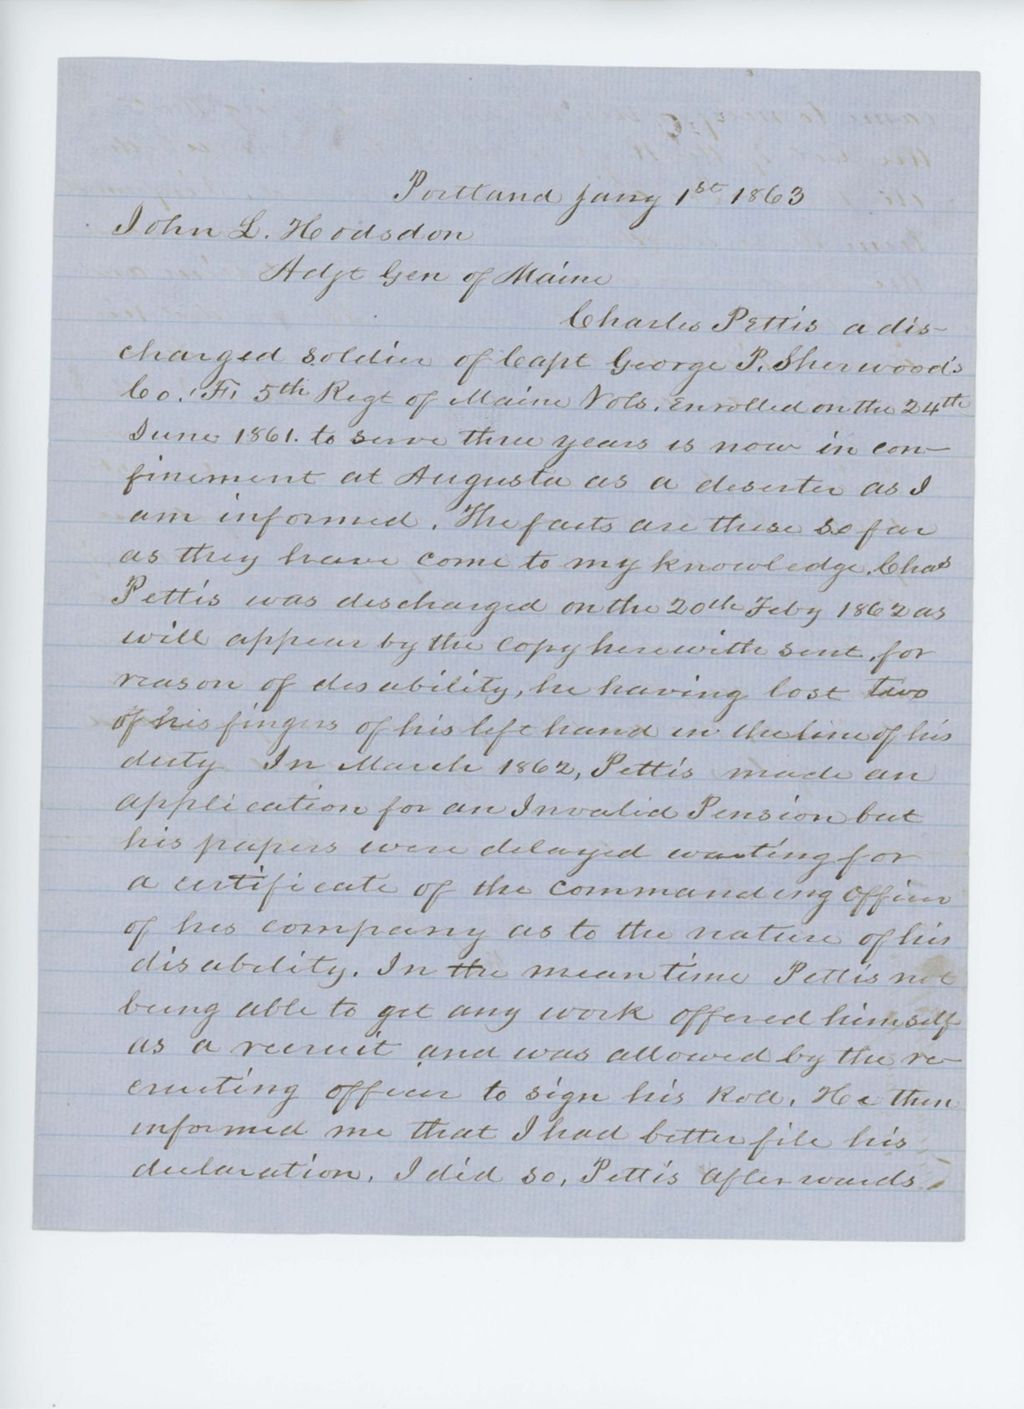 Portland Jany 1st 1863
John L. Hodsdon
Adjt Gen of Maine
Charles Pettis a dis-
charged soldier of Capt George P. Sherwood's
Co. "F" 5th Regt of Maine Vols. enrolled on the 24th
June 1861. to serve three years is now in con-
finement at Augusta as a deserter as I
am informed. The facts are these so far
as they have come to my knowledge. Chas
Pettis was discharged on the 20th Feby 1862 as
will appear by the copy herewith sent. for
reason of disability, he having lost two
of his fingers of his left hand in the line of his
duty In March 1862, Pettis made an
application for an Invalid Pension but
his papers were delayed waiting for
a certificate of the commanding Officer
of his company as to the nature of his
disability. In the mean time Pettis not
being able to get any work offered himself
as a recruit and was allowed by the re-
cruiting officer to sign his Roll. He then
informed me that I had better file his
declaration. I did so, Pettis afterwards